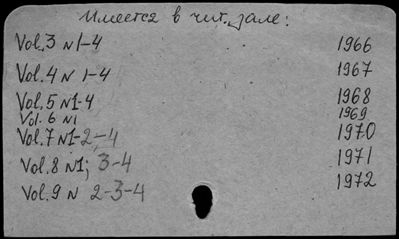 Имеется в чит. зале:
Vol.3 N1-4 1966
Vol.4 N 1-4 1967
Vol.5 N1-4 1968
Vol. 6 N1 1969
Vol.7 N1-2,-4 1970
Vol.8 N1; 3-4 1971
Vol.9 N 2-3-4 1972